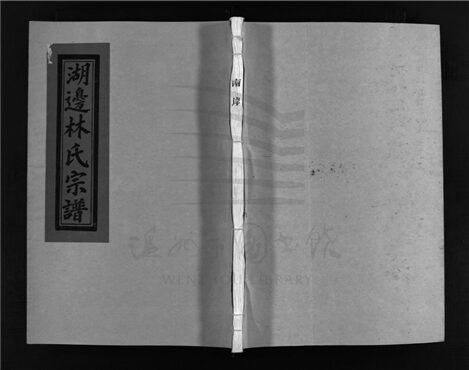 湖邊林氏宗譜
南岸
溫州市圖書館
WENZHOU LIBRARY